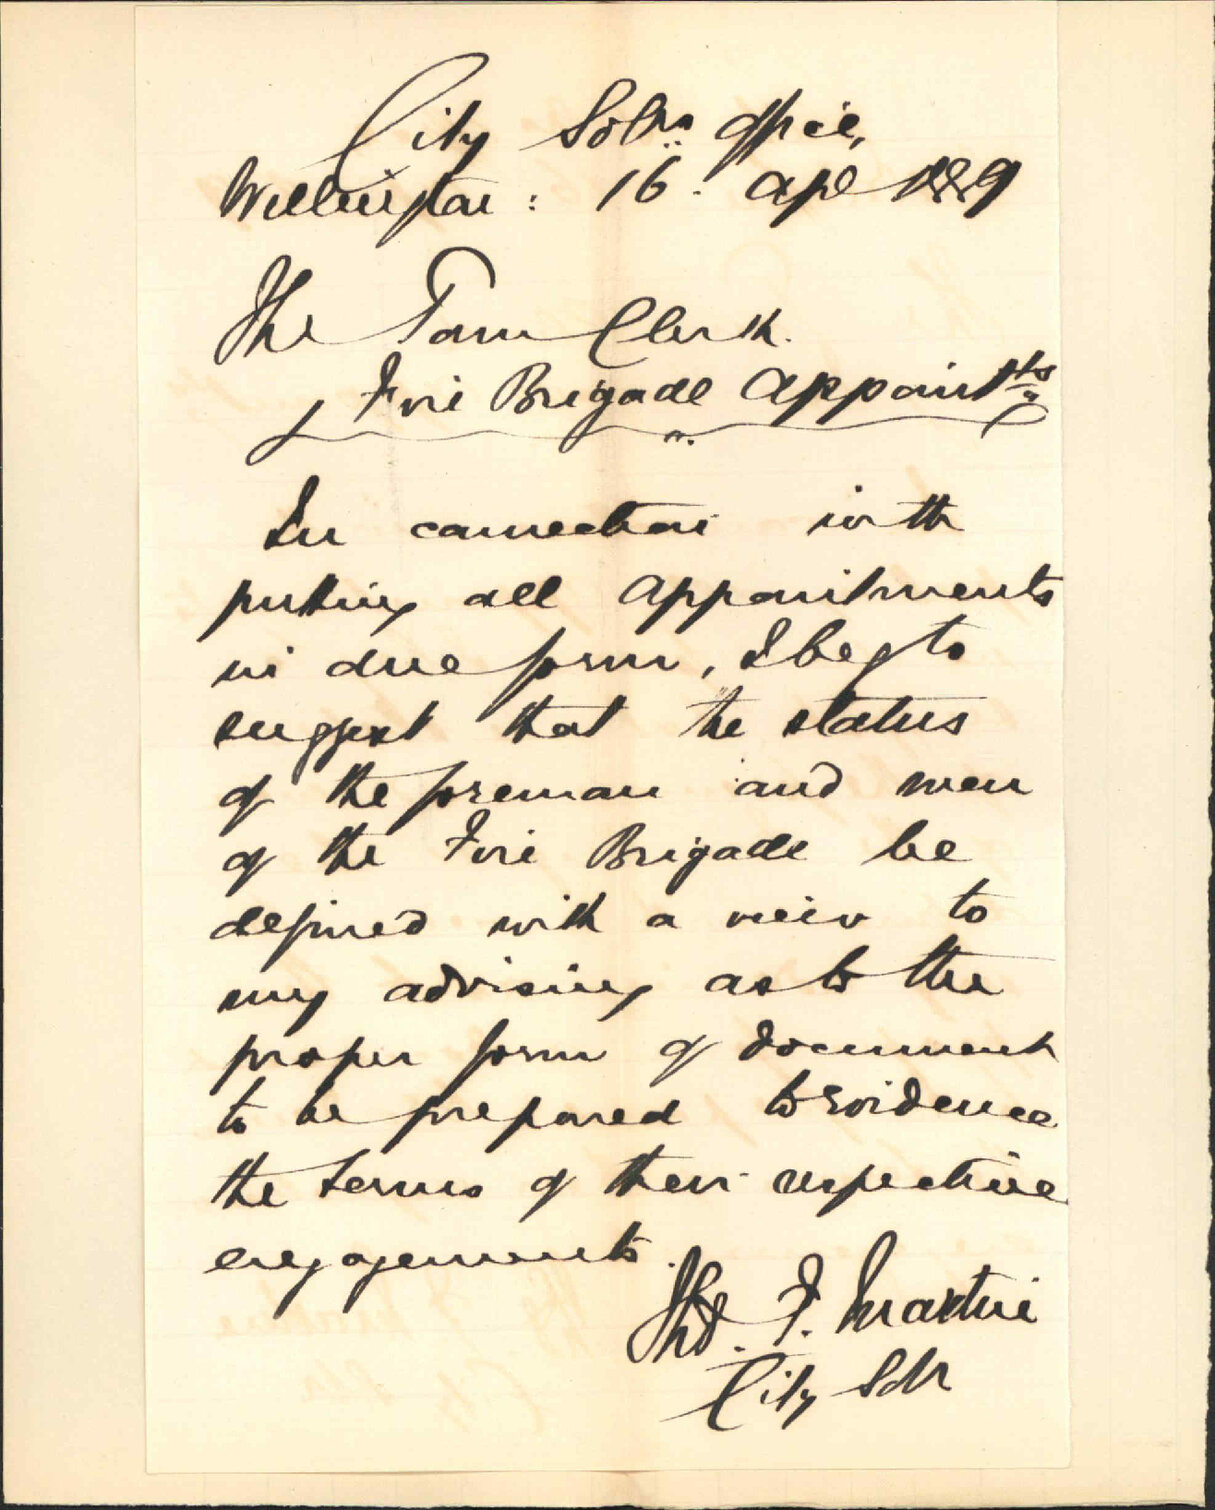 City Solrs Office,
Wellington: 16. Apl 1889
The Town Clerk.
Fire Brigade Appointts
In connection with
putting all appointments
in due form, I beg to
suggest that the status
of the foreman and men
of the Fire Brigade be
defined with a view to
my advising as to the
proper form of document
to be prepared to evidence
the terms of their respective
engagements.
Thos. F. Martin
City Solr